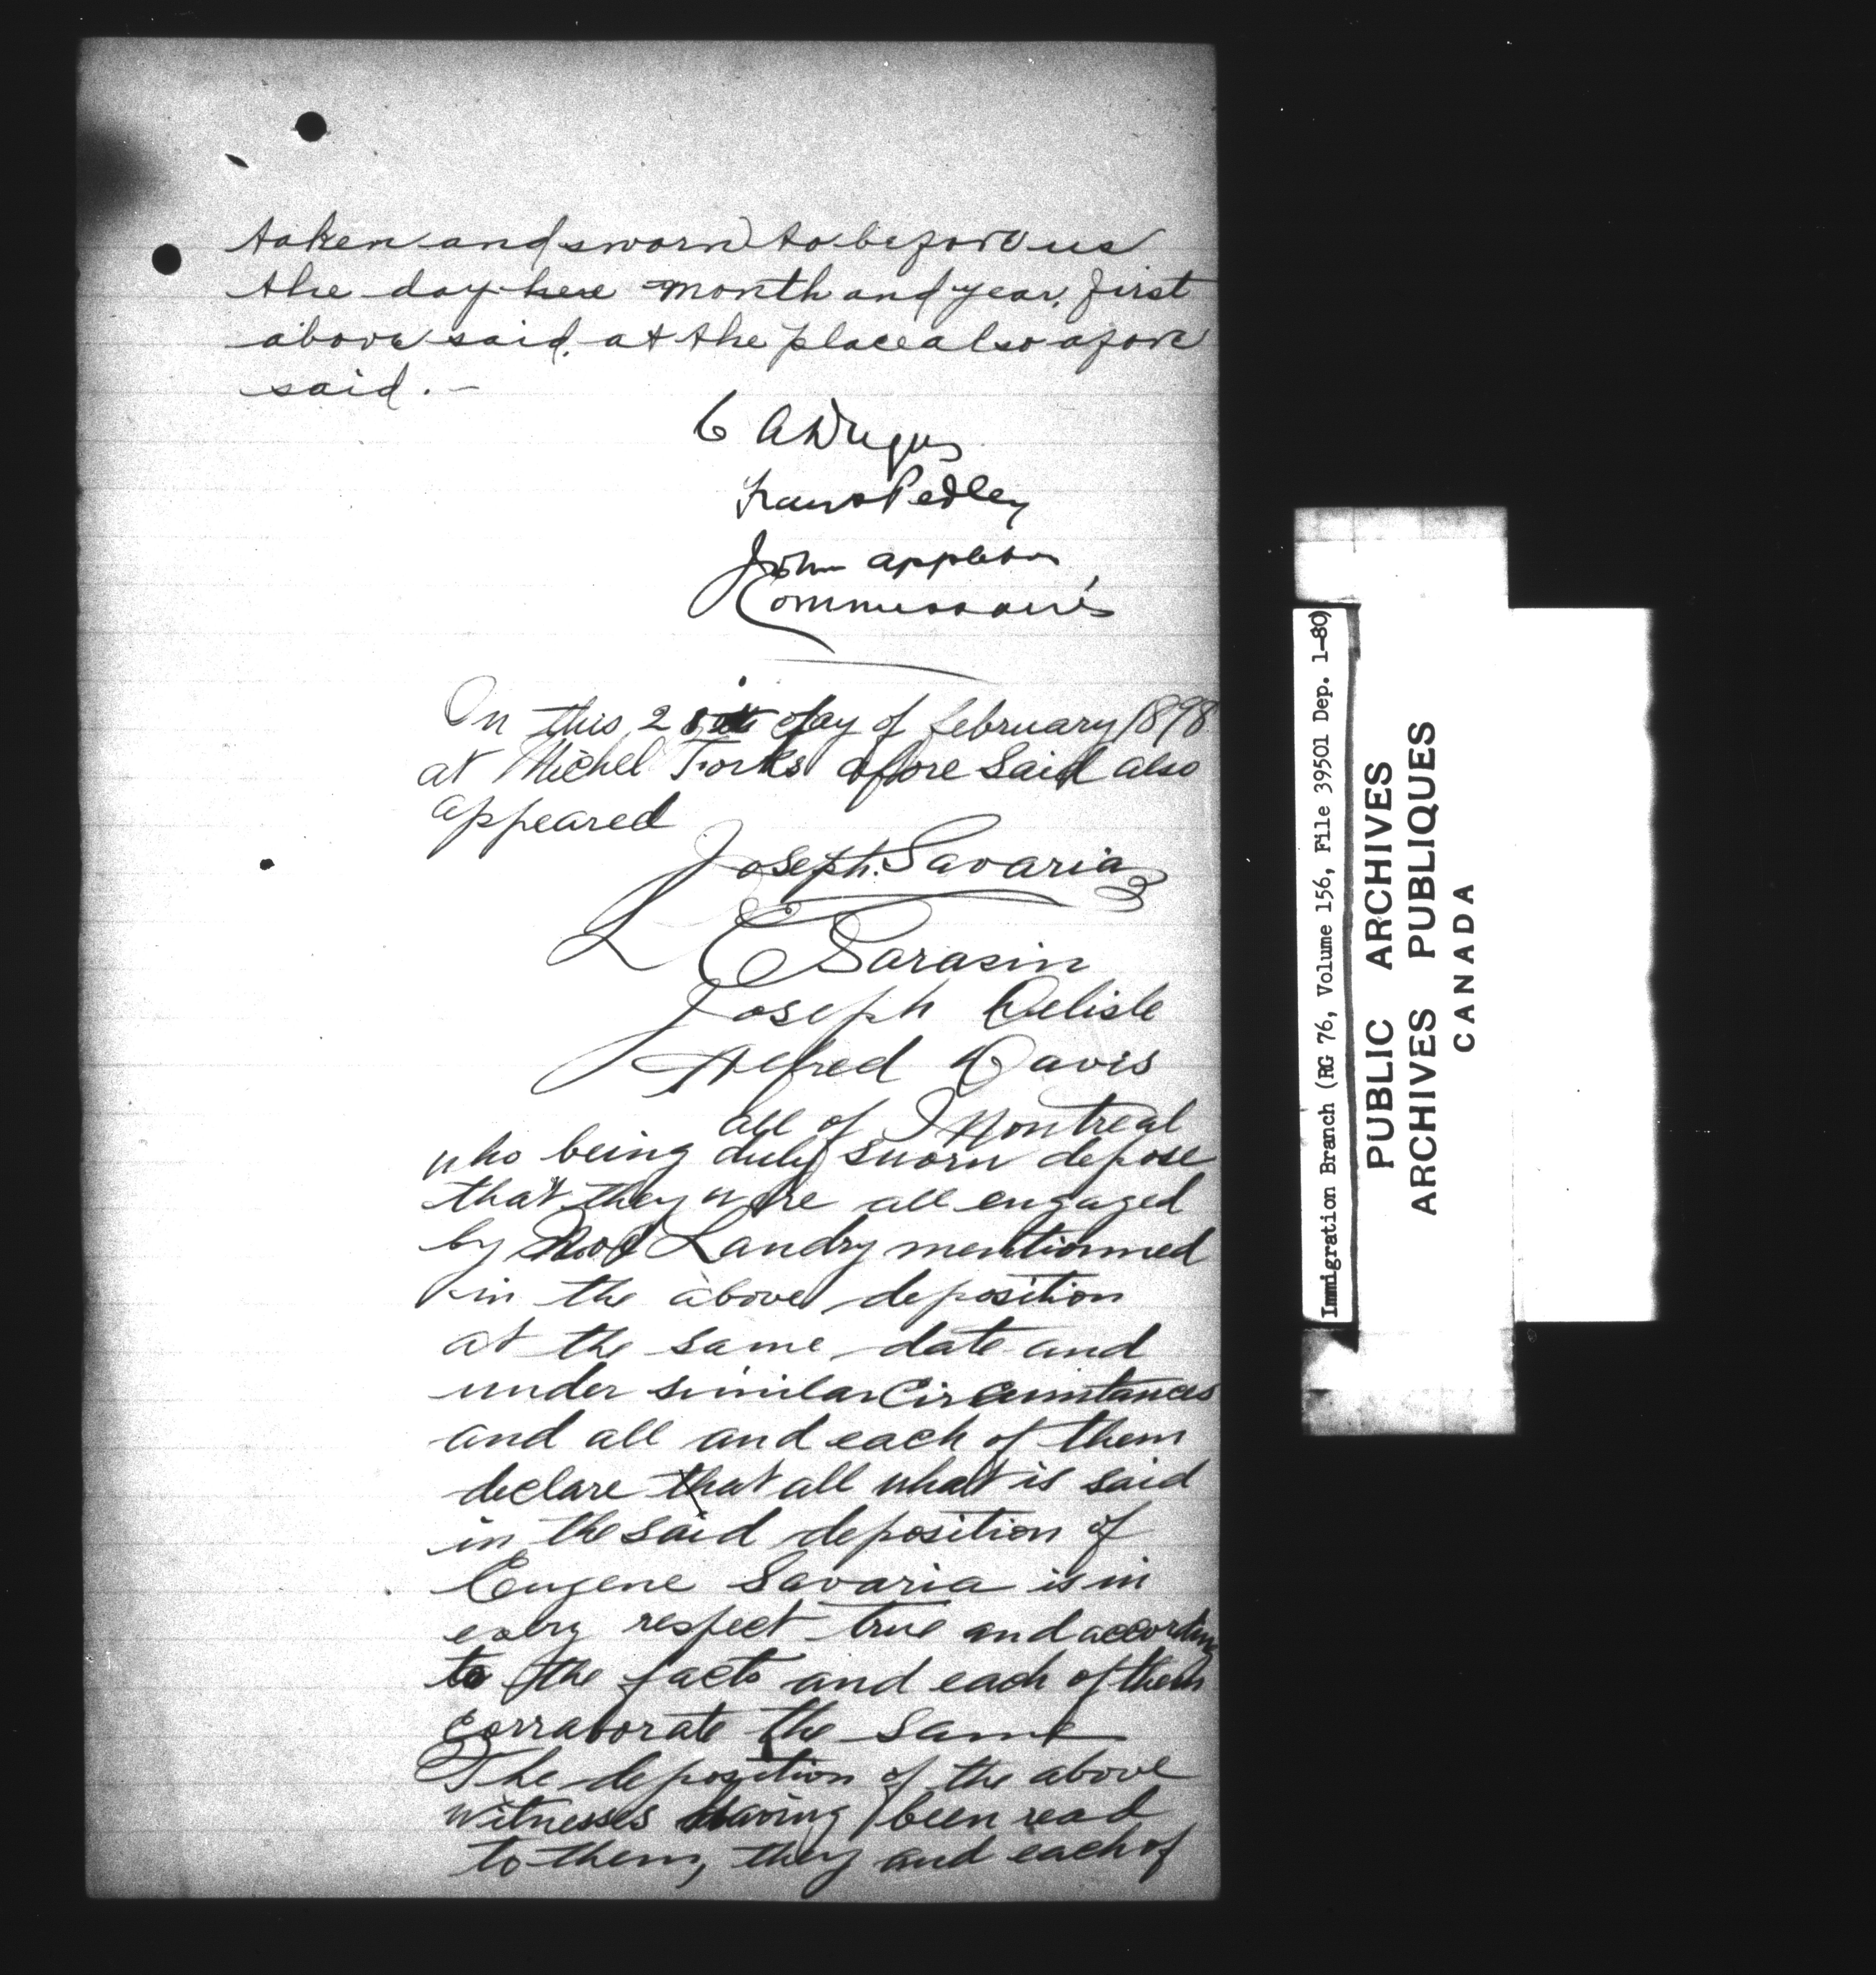 taken and sworn to before us
the day here month and year first
above said, at the place also afore
said. -
C A Dugas
Frank Pedley
John Appleton
Commissaires
On this 28th day of february 1898
at Michel Forks afore Said also
appeared
Joseph Savaria
L C Sarasin
Joseph Delisle
Alfred Davis
all of Montreal
who being duly sworn depose
that they were all engaged
by Noe Landry mentionned
in the above deposition
at the same date and
under similar Circumstances
and all and each of them
declare that all what is said
in the said deposition of
Eugene Savaria is in
every respect true and according
to the facts and each of them
corraborate the same
The deposition of the above
witnesses having been read
to them, they and each of
Immigration Branch (RG 76, Volume 156, File 39501 Dep. 1-80)
PUBLIC ARCHIVES
ARCHIVES PUBLIQUES
CANADA